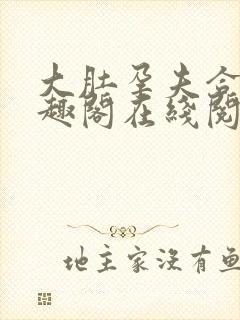 大肚孕夫合
趣阁在线阅
地主家没有鱼